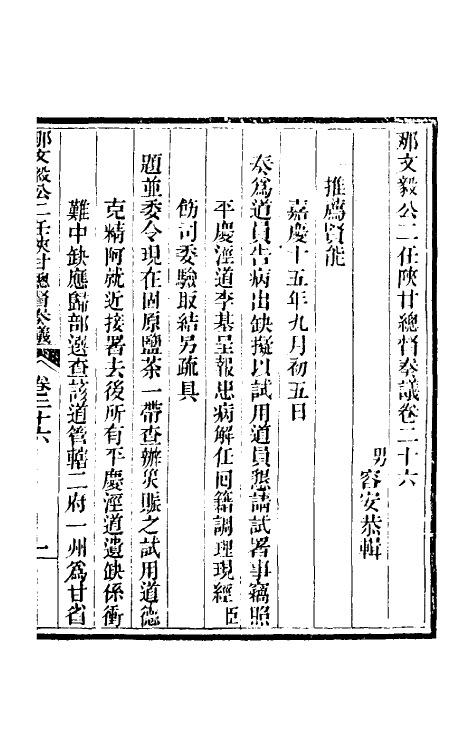 那文毅公二任陝甘總督奏議卷二十六
男容安恭輯
推薦賢能
嘉慶十五年九月初五日
奏爲道員告病出缺擬以試用道員懇請試署事竊照
平慶涇道李基呈報患病解任回籍調理現經臣
飭司委驗取結另疏具
題並委令現在固原鹽茶一帶查辦災賑之試用道德
克精阿就近接署去後所有平慶涇道遺缺係衝
難中缺應歸部選查該道管轄二府一州爲甘省
那文毅公二任陝甘總督奏議 卷二十六 一